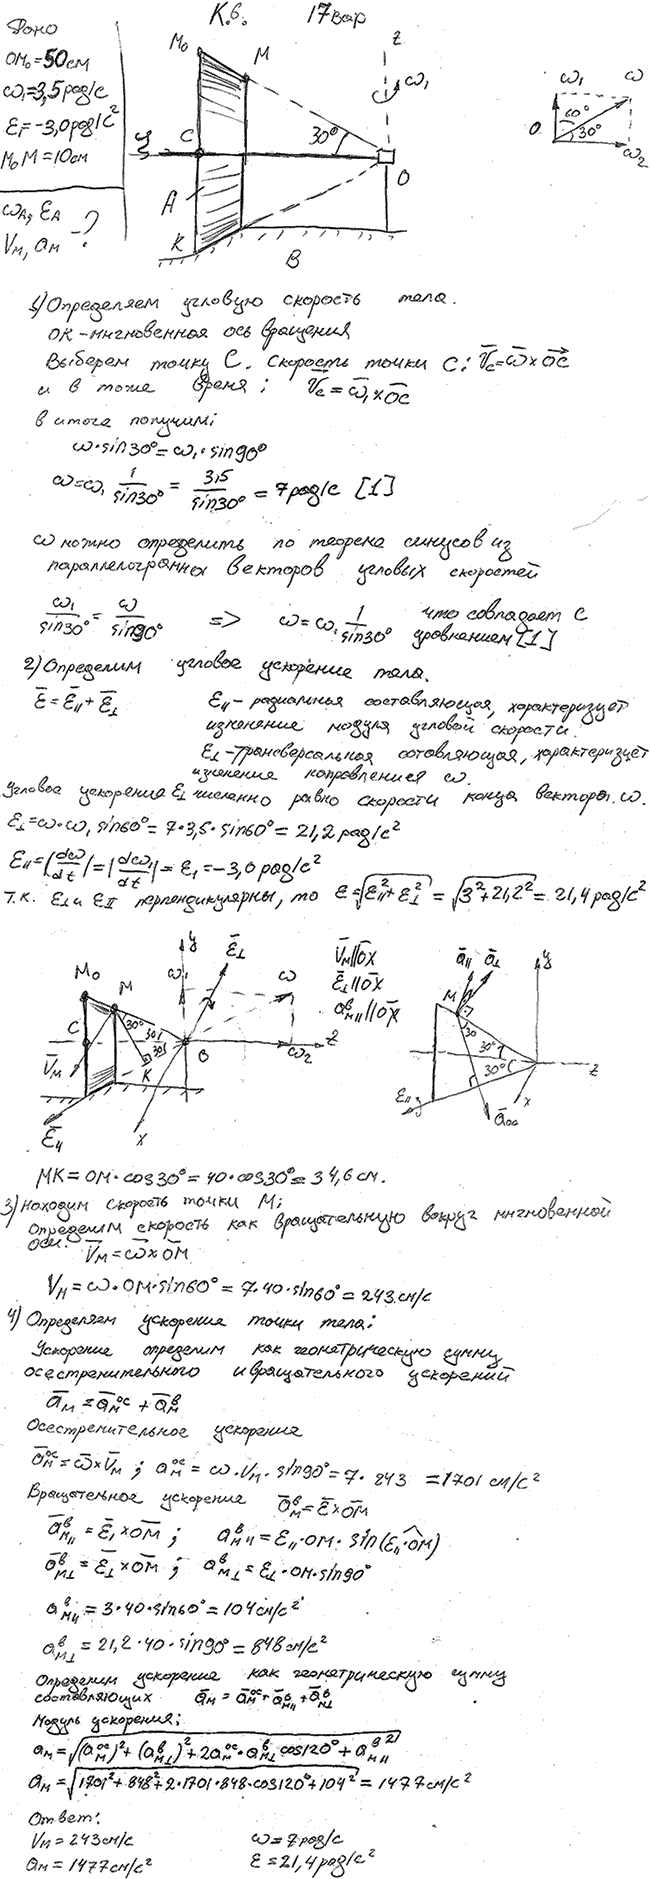 К.6. 17 вар
Дано
OM₀=50см
ω₁=3,5рад/с
ε₁=-3,0рад/с²
M₀M=10см
ωA, εA
VM, aM - ?
M₀ M z ω₁
C 30° O
A
K B
ω₁ ω
60° 30°
O ω₂
1) Определяем угловую скорость тела.
OK - мнгновенная ось вращения
Выберем точку C. Скорость точки C: V̄c=ω̄×OC
и в тоже время; V̄c=ω̄₁×OC
в итоге получим;
ω·sin30°=ω₁·sin90°
ω=ω₁ 1/sin30° = 3,5/sin30° = 7рад/с [1]
ω можно определить по теорема синусов из
параллелограмма векторов угловых скоростей
ω₁/sin30° = ω/sin90° => ω=ω₁ 1/sin30° что совпадает с
уровнением [1]
2) Определим угловое ускорение тела.
ε̄=ε̄∥+ε̄⊥ ε∥ - радиальная составляющая, характеризует
изменение модуля угловой скорости.
ε⊥ - трансверсальная сотовляющая, характеризует
изменение направления ω.
Угловое ускорение ε⊥ численно равно скорости конца вектора ω.
ε⊥=ω·ω₁ sin60°=7·3,5·sin60°=21,2рад/с²
ε∥=|dω/dt|=|dω₁/dt|=ε₁=-3,0рад/с²
т.к. ε⊥ и ε∥ перпендикулярны, то ε=√(ε∥²+ε⊥²)=√(3²+21,2²)=21,4рад/с²
y ε̄⊥ V̄M∥OX
M₀ M ω₁ ω ε̄⊥∥OX
C 30° 30° 30° O z āᴮM∥∥OX
V̄M K ω₂
ε̄∥ x
ā∥ ā⊥ y
M 30 30° 30° z
ε∥ āос x
MK=OM·cos30°=40·cos30°=34,6см.
3) Находим скорость точки M;
Определим скорость как вращательную вокруг мнгновенной
оси. V̄M=ω̄×OM
VM=ω·OM·sin60°=7·40·sin60°=243см/с
4) Определяем ускорение точки тела:
Ускорение определим как геометрическую сумму
осестренительного и вращательного ускорений
āM=āMос+āMв
Осестренительное ускорение
āMос=ω̄×V̄M; aMос=ω·VM·sin90°=7·243=1701см/с²
Вращательное ускорение āMв=ε̄×OM
āвM∥=ε̄₁×OM; aвM∥=ε∥·OM·sin(ε∥ OM)
āвM⊥=ε̄⊥×OM; aвM⊥=ε⊥·OM·sin90°
aвM∥=3·40·sin60°=104см/с²
aвM⊥=21,2·40·sin90°=848см/с²
Определим ускорение как геометрическую сумму
составляющих āM=āMос+āвM∥+āвM⊥
Модуль ускорения;
aM=√((aMос)²+(aвM⊥)²+2aMос·aвM⊥cos120°+aвM∥²)
aM=√(1701²+848²+2·1701·848·cos120°+104²)=1477см/с²
Ответ:
VM=243см/с ω=7рад/с
aM=1477см/с² ε=21,4рад/с²